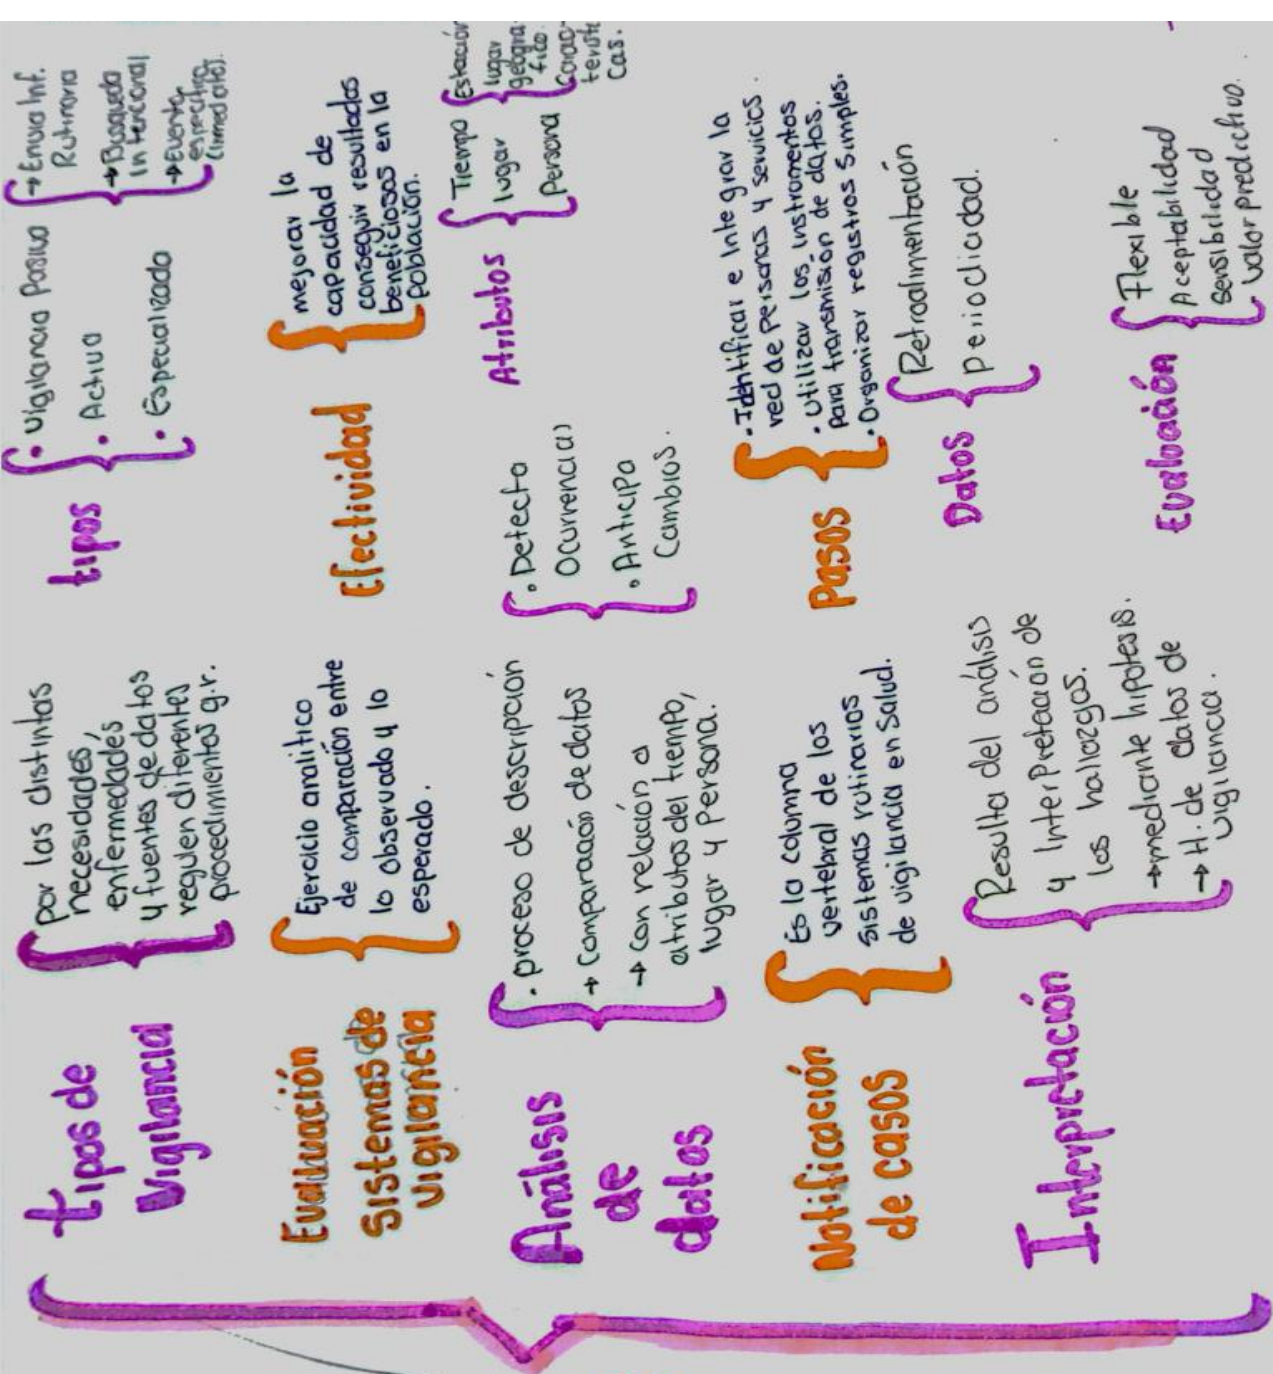 tipos de
Vigilancia
por las distintas
necesidades,
enfermedades
y fuentes de datos
reguen diferentes
procedimientos g.r.
tipos
• Vigilancia Pasiva
• Activa
• Especializada
→ Envia Inf.
Rutinaria
→ Busqueda
Intencional
→ Evento
específico
(inmediato).
Evaluación
Sistemas de
Vigilancia
Ejercicio analitico
de comparación entre
lo observado y lo
esperado.
Efectividad
mejorar la
capacidad de
conseguir resultados
beneficiosos en la
población.
Análisis
de
datos
• proceso de descripción
→ Comparación de datos
→ Con relación a
atributos del tiempo,
lugar y Persona.
• Detecta
Ocurrencia(s)
• Anticipa
Cambios.
Atributos
Tiempo
lugar
Persona
Estación
lugar
geogra-
fico.
Carac-
terísti
cas.
Notificación
de casos
Es la columna
vertebral de los
sistemas rutinarios
de vigilancia en Salud.
Pasos
• Identificar e Integrar la
red de Personas y servicios.
• Utilizar los instrumentos
para transmisión de datos.
• Organizar registros Simples.
Interpretación
Resulta del análisis
y Interpretación de
los hallazgos.
→ mediante hipotesis.
→ H. de datos de
vigilancia.
Datos
Retroalimentación
periodicidad.
Evaluación
Flexible
Aceptabilidad
Sensibilidad
Valor predictivo.